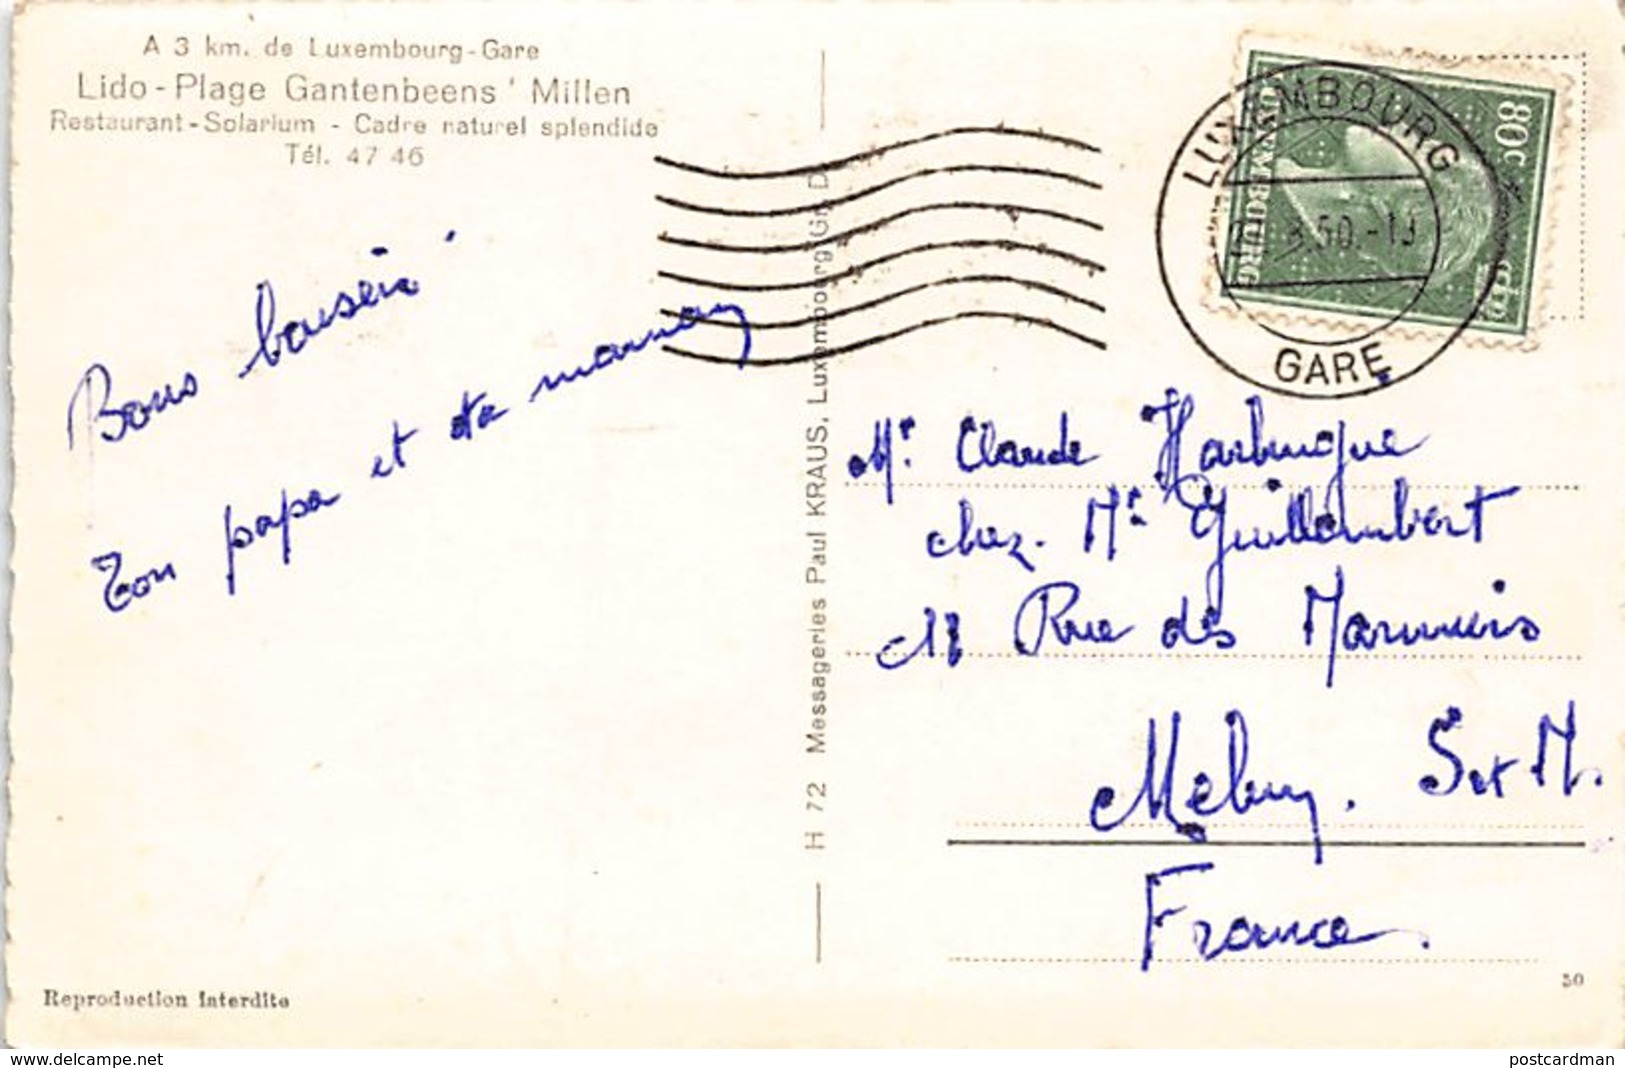 A 3 km. de Luxembourg-Gare
Lido-Plage Gantenbeens' Millen
Restaurant-Solarium - Cadre naturel splendide
Tél. 47 46
Bons baisers
Ton papa et ta maman
H 72 Messageries Paul KRAUS, Luxembourg Gr. D.
LUXEMBOURG
.50.-19
GARE
80c
LUXEMBOURG
Mr. Claude
chez. Mr Guillembert
18 Rue des
Melun. S et M.
France.
Reproduction Interdite
50
www.delcampe.net
postcardman